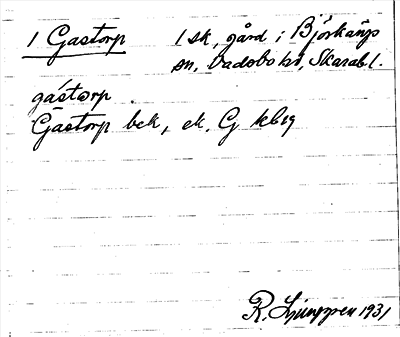 1 Gastorp 1 sk, gård i Björkängs
sn, Vadsbo hd, Skarabl.
gástɷrp.
Gastorp bck, ek. G kbig
R. Ljunggren 1931